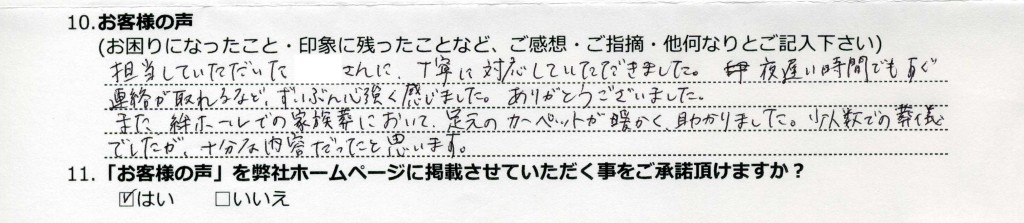 10.お客様の声
(お困りになったこと・印象に残ったことなど、ご感想・ご指摘・他何なりとご記入下さい)
担当していただいた さんに、丁寧に対応していただきました。夜遅い時間でもすぐ
連絡が取れるなど、ずいぶん心強く感じました。ありがとうございました。
また、絆ホールでの家族葬において、足元のカーペットが暖かく、助かりました。少人数での葬儀
でしたが、十分な内容だったと思います。
11.「お客様の声」を弊社ホームページに掲載させていただく事をご承諾頂けますか？
☑はい □いいえ